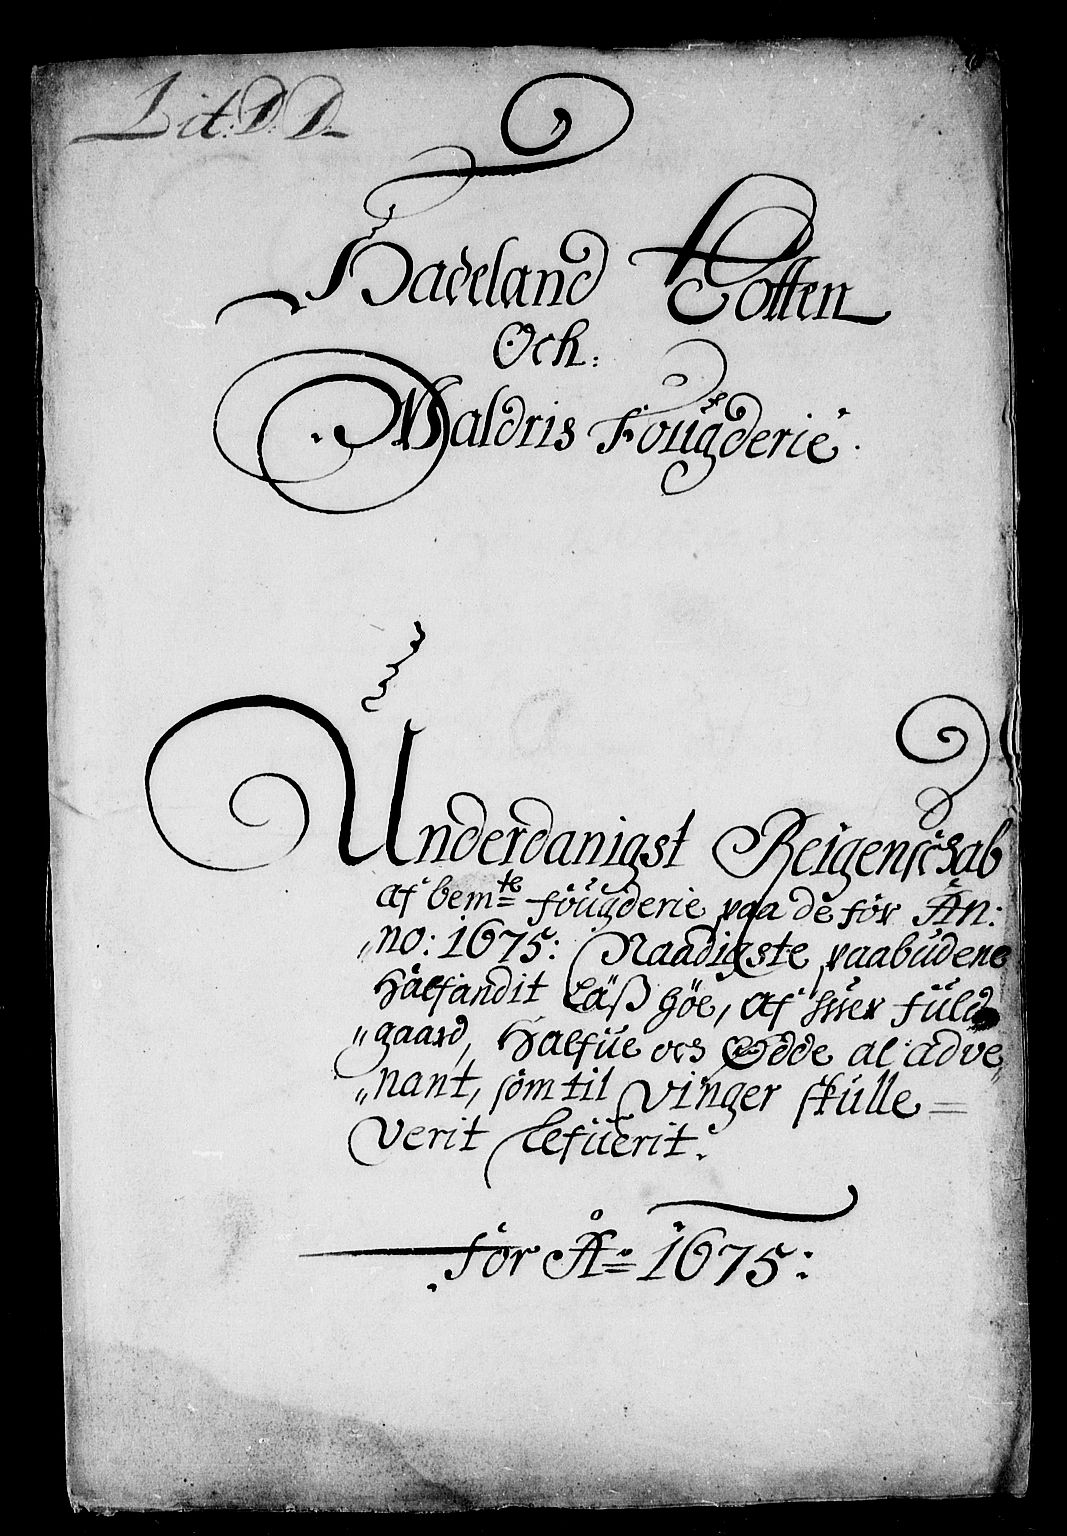 Lit: D: D:
Hadeland Totten
Och:
Waldris Fougderie.
Underdanigst Reigenschab
af bem.te fougderie paa de for An:
„no: 1675: Naadigste paabudene
Halfandit Läß höe, af huer fuld
„gaard, Halfue och Ødde al: adve„
„nant, som til Vinger skulle =
Verit lefuerit:
for Aº 1675: